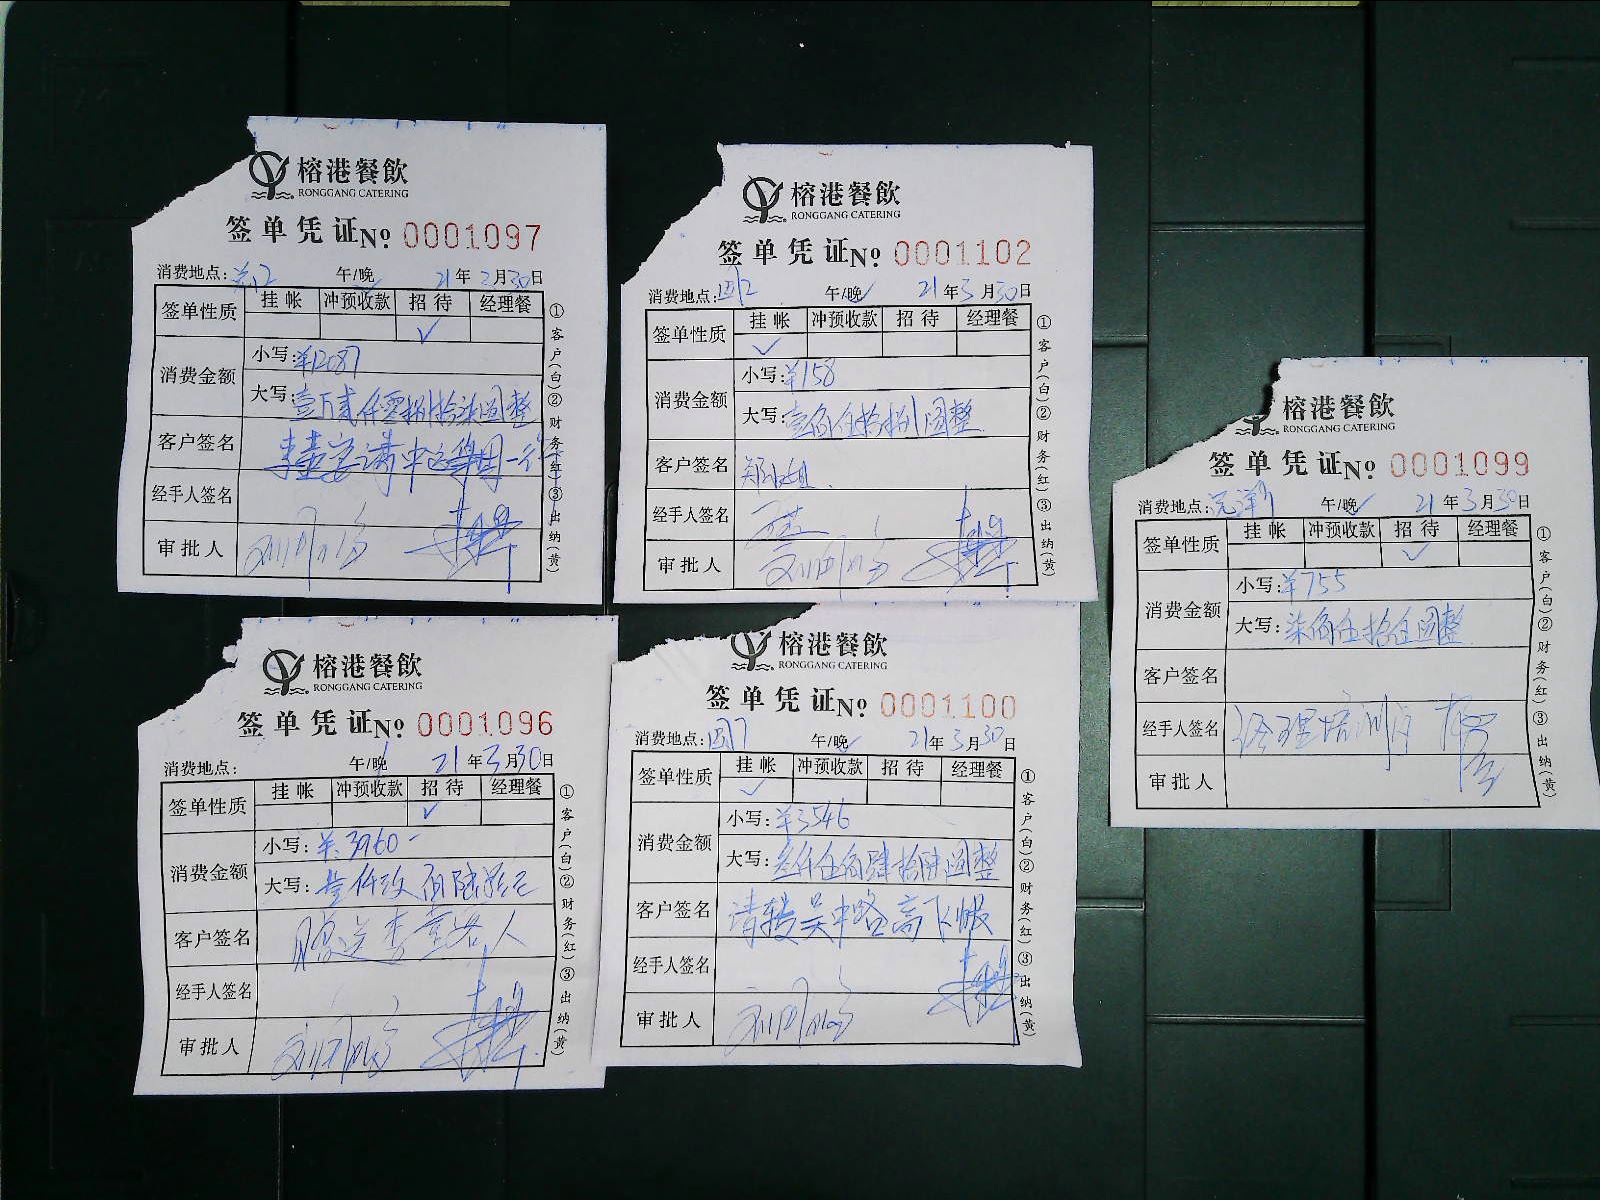 榕港餐飲
RONGGANG CATERING
签单凭证 № 0001097
消费地点: 午/晚 21年3月30日
签单性质 挂帐 冲预收款 招待 经理餐
✓
消费金额 小写: ¥12087
大写: 壹万贰仟零捌拾柒圆整
客户签名
经手人签名
审批人
①客户(白)②财务(红)③出纳(黄)
榕港餐飲
RONGGANG CATERING
签单凭证 № 0001102
消费地点: 午/晚 21年3月30日
签单性质 挂帐 冲预收款 招待 经理餐
✓
消费金额 小写: ¥158
大写: 壹佰伍拾捌圆整
客户签名 郑小姐
经手人签名
审批人
①客户(白)②财务(红)③出纳(黄)
榕港餐飲
RONGGANG CATERING
签单凭证 № 0001099
消费地点: 午/晚 21年3月30日
签单性质 挂帐 冲预收款 招待 经理餐
✓
消费金额 小写: ¥755
大写: 柒佰伍拾伍圆整
客户签名
经手人签名 经理培训
审批人
①客户(白)②财务(红)③出纳(黄)
榕港餐飲
RONGGANG CATERING
签单凭证 № 0001096
消费地点: 午/晚 21年3月30日
签单性质 挂帐 冲预收款 招待 经理餐
✓
消费金额 小写: ¥3960-
大写: 叁仟玖佰陆拾元
客户签名 赠送李董客人
经手人签名
审批人
①客户(白)②财务(红)③出纳(黄)
榕港餐飲
RONGGANG CATERING
签单凭证 № 0001100
消费地点: 午/晚 21年3月30日
签单性质 挂帐 冲预收款 招待 经理餐
✓
消费金额 小写: ¥3546
大写: 叁仟伍佰肆拾陆圆整
客户签名 请转吴中路店下帐
经手人签名
审批人
①客户(白)②财务(红)③出纳(黄)